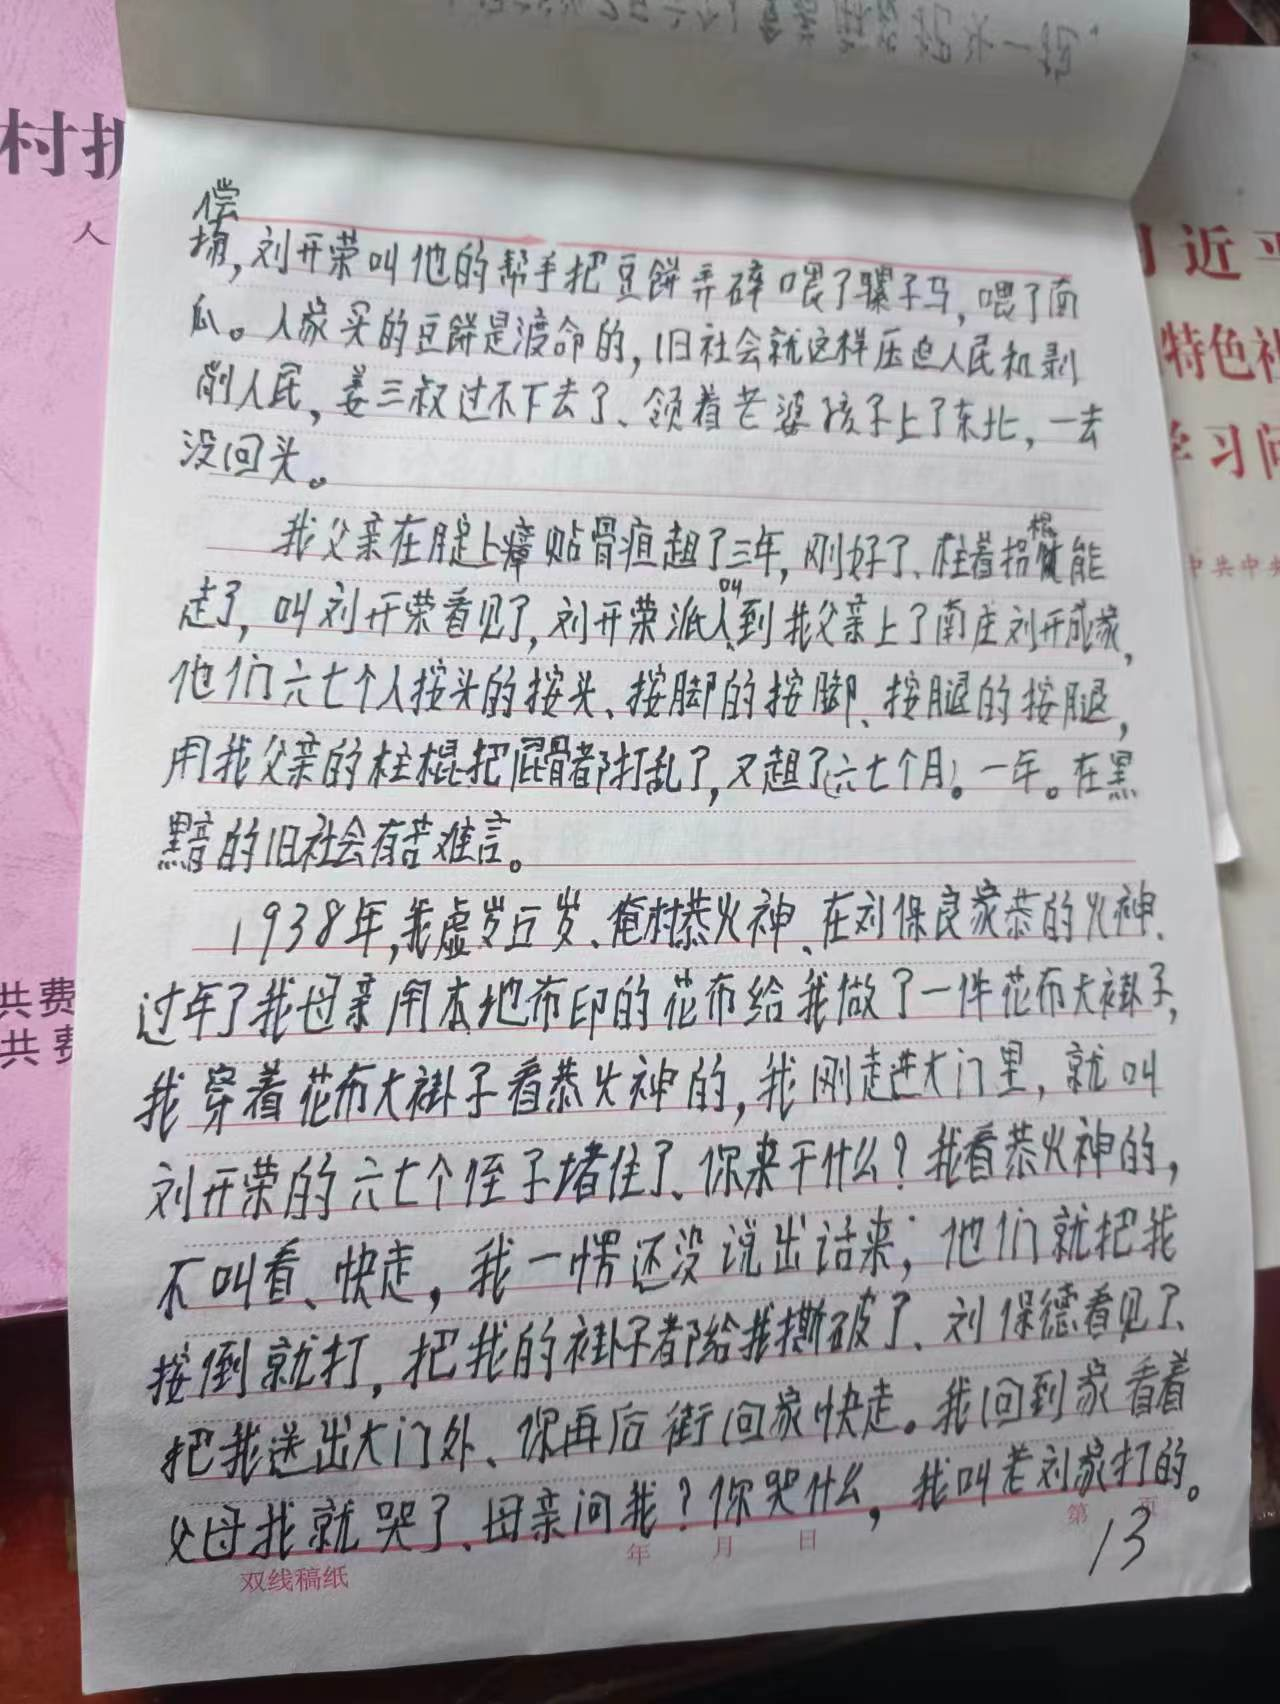 村
人
共费
共费
近平
特色社
学习问
中共中央
偿
刘开荣叫他的帮手把豆餅弄碎喂了骡子马，喂了南
瓜。人家买的豆餅是渡命的，旧社会就这样压迫人民和剥
削人民，姜三叔过不下去了、领着老婆孩子上了东北，一去
没回头。
我父亲在腚上瘴贴骨疽趄了三年，刚好了、柱着拐棍能
走了，叫刘开荣看见了，刘开荣派人叫到我父亲上了南庄刘开成家，
他们六七个人按头的按头、按脚的按脚、按腿的按腿，
用我父亲的柱棍把屁骨都打乱了，又趄了（六七个月）。一年。在黑
黑音的旧社会有苦难言。
1938年，我虚岁五岁、俺村恭火神、在刘保良家恭的火神、
过年了我母亲用本地布印的花布给我做了一件花布大褂子，
我穿着花布大褂子看恭火神的，我刚走进大门里，就叫
刘开荣的六七个侄子堵住了、你来干什么？我看恭火神的，
不叫看、快走，我一愣还没说出话来；他们就把我
按倒就打，把我的褂子都给我撕破了、刘保德看见了、
把我送出大门外、你再后街回家快走。我回到家看着
父母我就哭了、母亲问我？你哭什么，我叫老刘家打的。
第 页
年 月 日
13
双线稿纸